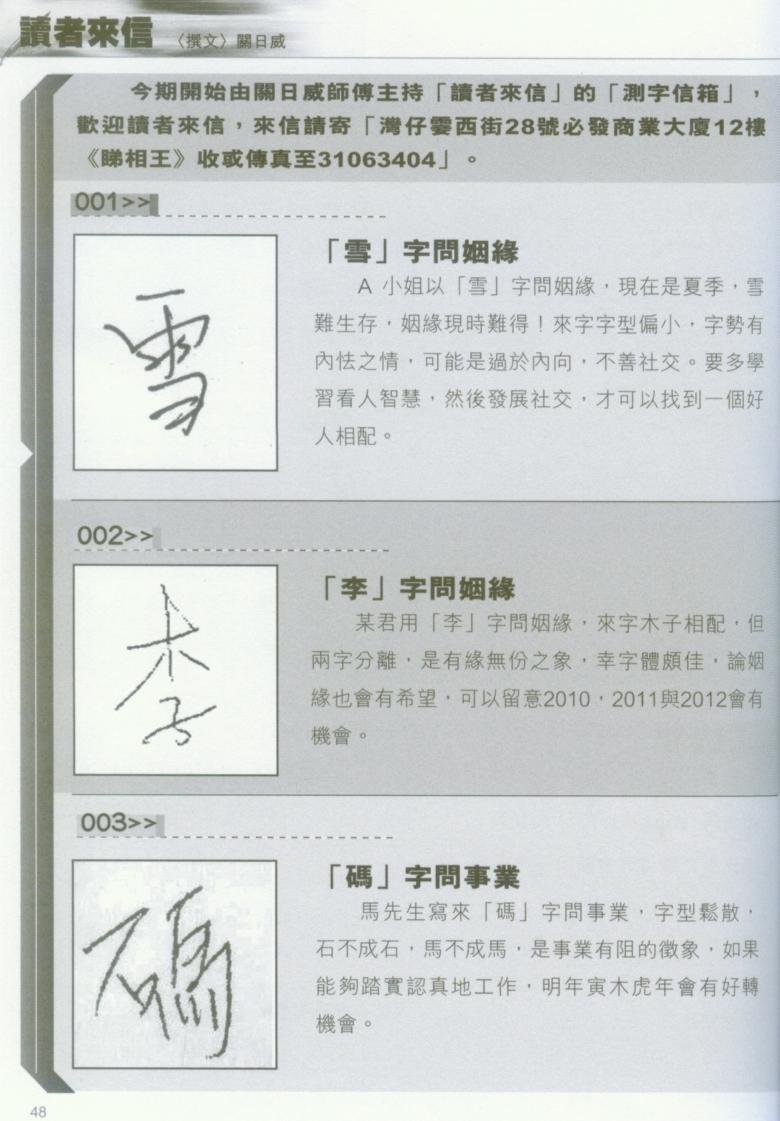 讀者來信 〈撰文〉關日威
今期開始由關日威師傅主持「讀者來信」的「測字信箱」，
歡迎讀者來信，來信請寄「灣仔霎西街28號必發商業大廈12樓
《睇相王》收或傳真至31063404」。
001>>
雪
「雪」字問姻緣
A 小姐以「雪」字問姻緣，現在是夏季，雪
難生存，姻緣現時難得！來字字型偏小，字勢有
內怯之情，可能是過於內向，不善社交。要多學
習看人智慧，然後發展社交，才可以找到一個好
人相配。
002>>
李
「李」字問姻緣
某君用「李」字問姻緣，來字木子相配，但
兩字分離，是有緣無份之象，幸字體頗佳，論姻
緣也會有希望，可以留意2010，2011與2012會有
機會。
003>>
碼
「碼」字問事業
馬先生寫來「碼」字問事業，字型鬆散，
石不成石，馬不成馬，是事業有阻的徵象，如果
能夠踏實認真地工作，明年寅木虎年會有好轉
機會。
48